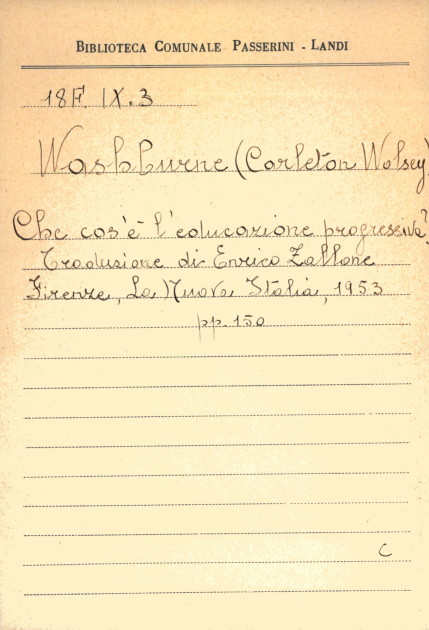 BIBLIOTECA COMUNALE PASSERINI - LANDI
18F. IX. 3
Washburne (Carleton Wolsey)
Che cos'è l'educazione progressiva?
Traduzione di Enrico Zallone
Firenze, La Nuova Italia, 1953
pp. 150
C